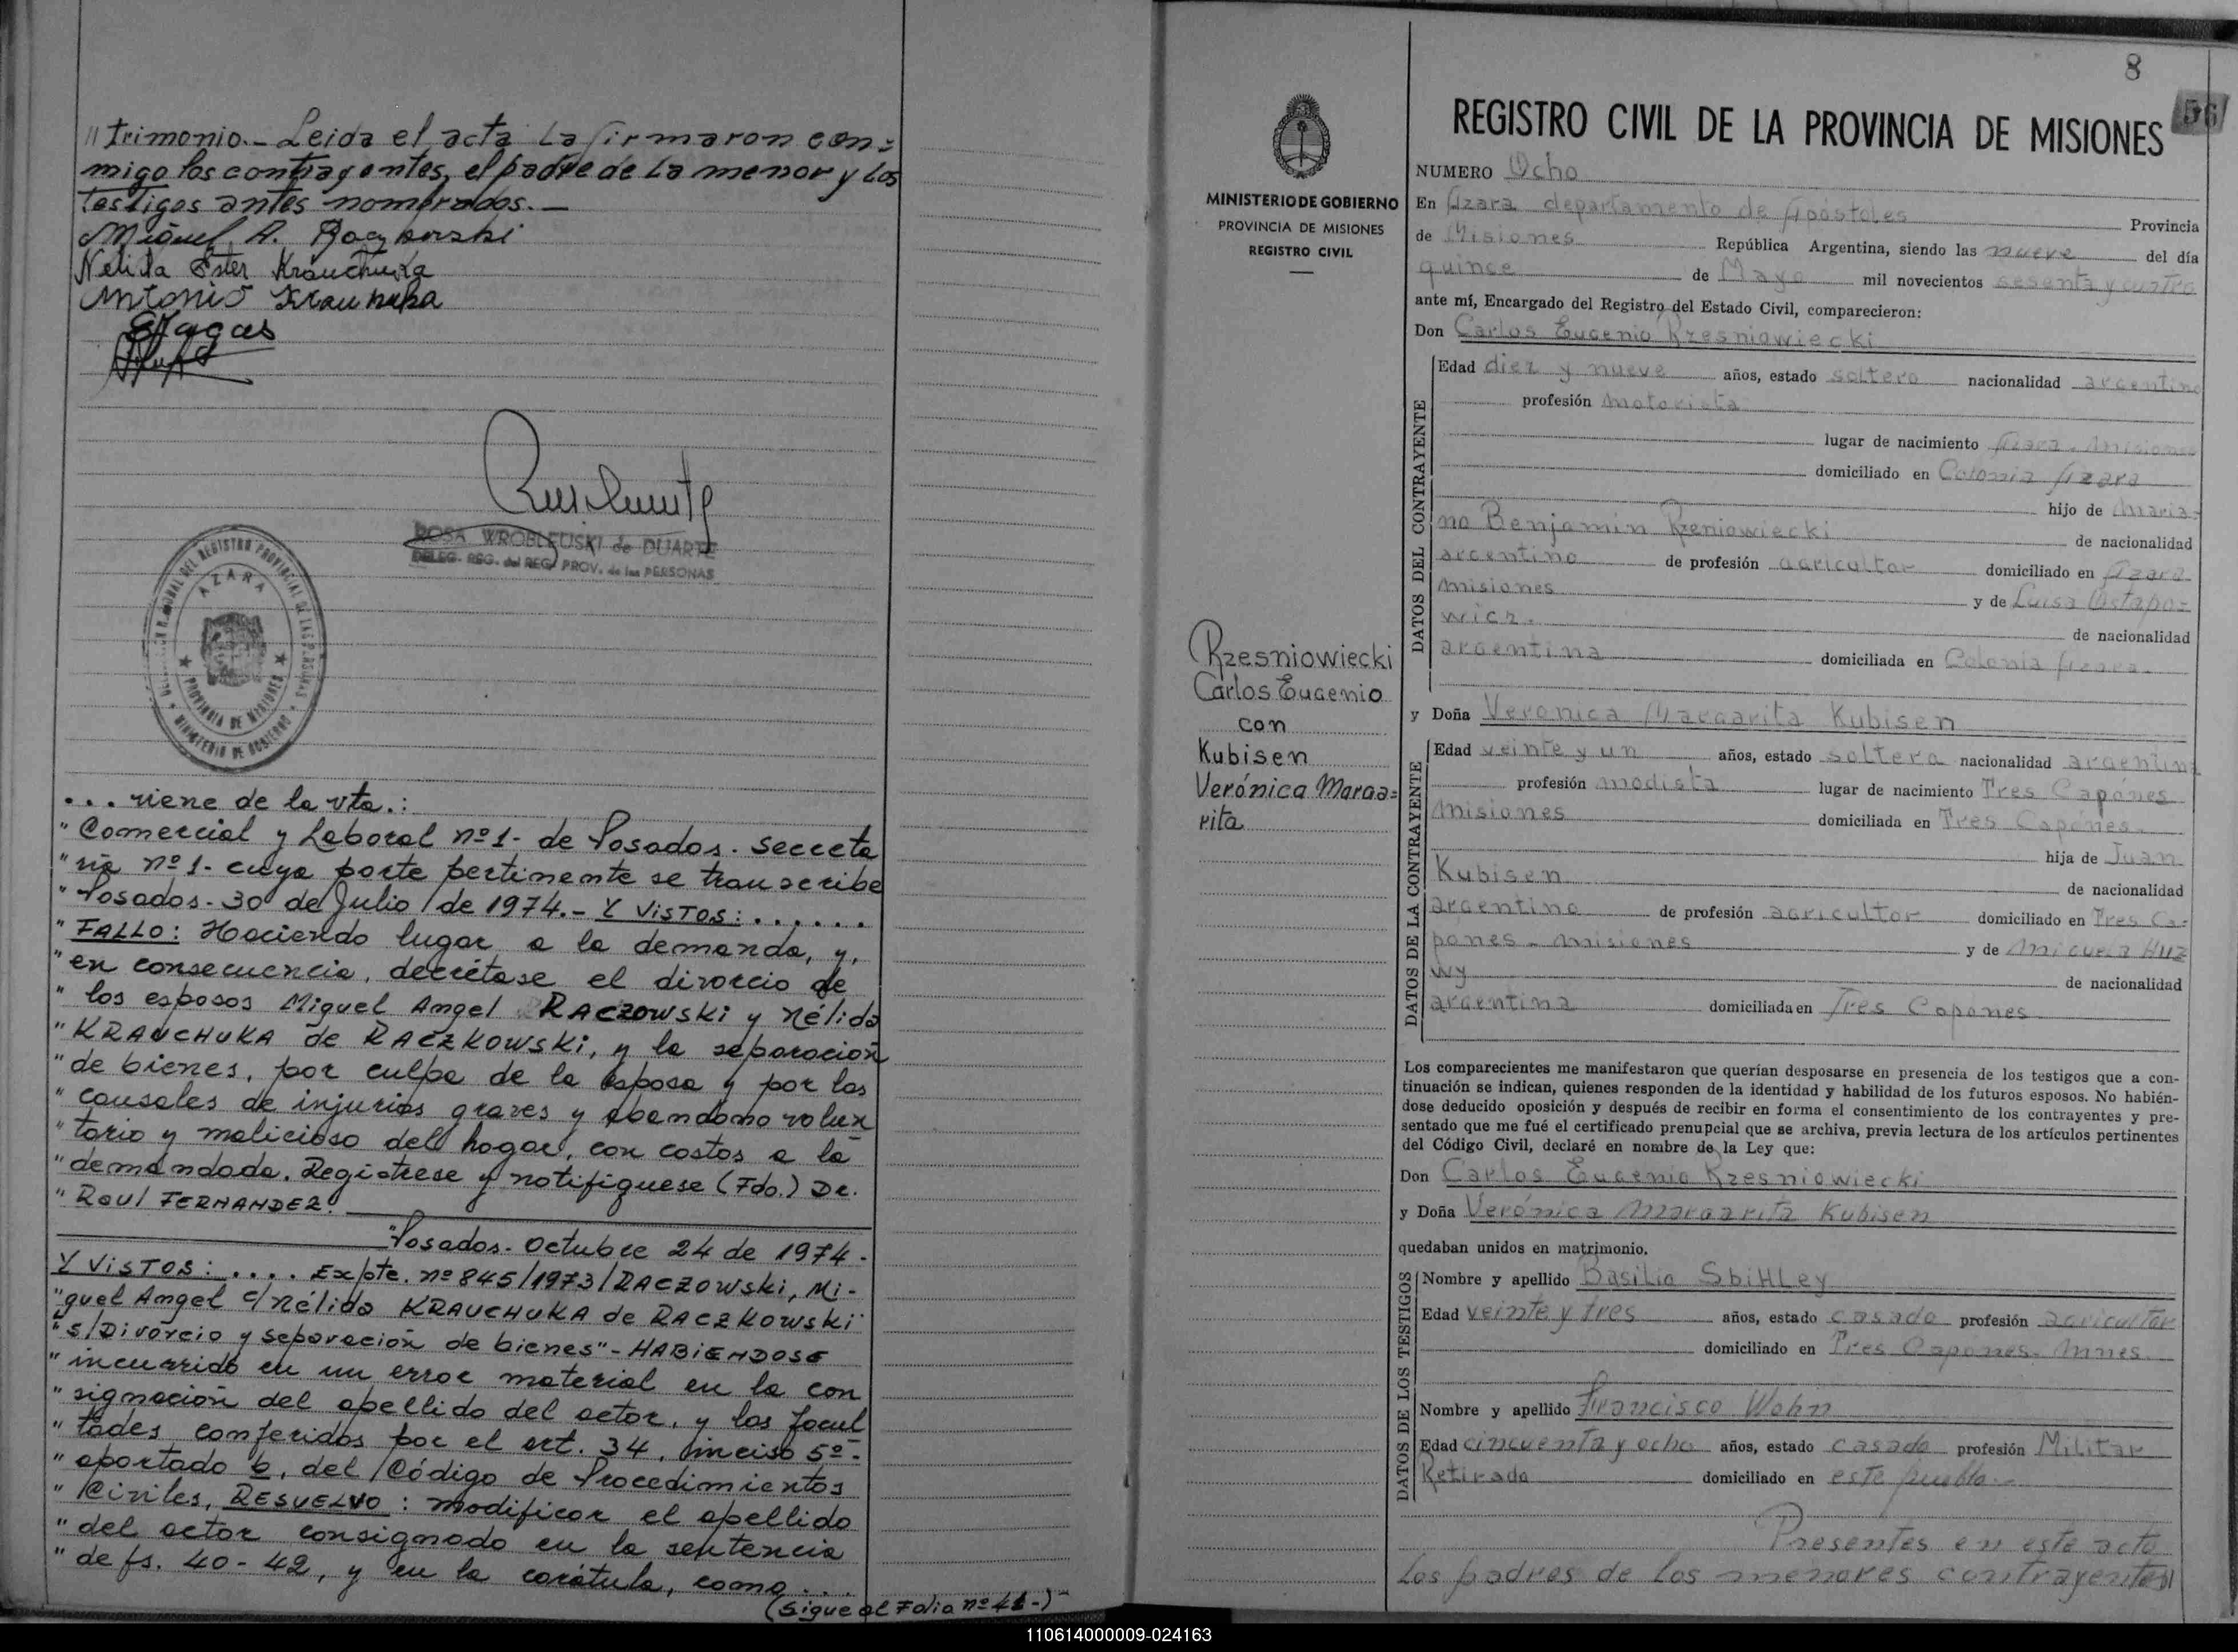 "trimonio.- Leida el acta la firmaron con=
migo los contrayentes, el padre de la menor y los
testigos antes nombrados.-
Miguel A. Raczkowski
Nelida Ester Krauchuka
Antonio Krauchuka
ROSA WROBLEUSKI de DUARTE
DELEG. REG. del REG. PROV. de las PERSONAS
REGISTRO PROVINCIAL DE LAS PERSONAS
AZARA
PROVINCIA DE MISIONES
MINISTERIO DE GOBIERNO
... viene de la vta.:
"Comercial y Laboral nº 1- de Posadas. Secreta
"ría nº 1- cuya parte pertinente se transcribe
"Posadas- 30 de Julio de 1974.- Y VISTOS: ......
"FALLO: Haciendo lugar a la demanda, y,
"en consecuencia, decrétase el divorcio de
"los esposos Miguel Angel RACZOWSKI y Nélida
"KRAUCHUKA de RACZKOWSKI, y la separación
"de bienes, por culpa de la esposa y por las
"causales de injurias graves y abandono volun
"tario y malicioso del hogar, con costas a la
"demandada. Regístrese y notifíquese (Fdo.) Dr.
"RAUL FERNANDEZ.
"Posadas- Octubre 24 de 1974-
Y VISTOS: .... Expte. nº 845/1973/RACZOWSKI, Mi-
"guel Angel c/Nélida KRAUCHUKA de RACZKOWSKI
"s/Divorcio y separación de bienes"- HABIENDOSE
"incurrido en un error material en la con
"signación del apellido del actor, y las facul
"tades conferidas por el art. 34, inciso 5º-
"apartado b, del Código de Procedimientos
"Civiles, RESUELVO: modificar el apellido
"del actor consignado en la sentencia
"de fs. 40-42, y en la carátula, como ...
(sigue al Folio nº 41-)-
8
56
MINISTERIO DE GOBIERNO
PROVINCIA DE MISIONES
REGISTRO CIVIL
Rzesniowiecki
Carlos Eugenio
con
Kubisen
Verónica Marga=
rita
REGISTRO CIVIL DE LA PROVINCIA DE MISIONES
NUMERO Ocho
En Azara departamento de Apóstoles Provincia
de Misiones República Argentina, siendo las nueve del día
quince de Mayo mil novecientos sesenta y cuatro
ante mí, Encargado del Registro del Estado Civil, comparecieron:
Don Carlos Eugenio Rzesniowiecki
DATOS DEL CONTRAYENTE
Edad diez y nueve años, estado soltero nacionalidad argentino
profesión motorista
lugar de nacimiento Azara - Misiones
domiciliado en Colonia Azara
hijo de Maria-
no Benjamin Rzeniowiecki de nacionalidad
argentino de profesión agricultor domiciliado en Azara
Misiones y de Luisa Ostapo-
wicz. de nacionalidad
argentina domiciliada en Colonia Azara.
y Doña Veronica Margarita Kubisen
DATOS DE LA CONTRAYENTE
Edad veinte y un años, estado soltera nacionalidad argentina
profesión modista lugar de nacimiento Tres Capones
Misiones domiciliada en Tres Capones.
hija de Juan
Kubisen de nacionalidad
argentino de profesión agricultor domiciliado en Tres Ca-
pones - Misiones y de Miguela Huz
wy de nacionalidad
argentina domiciliada en Tres Capones
Los comparecientes me manifestaron que querían desposarse en presencia de los testigos que a con-
tinuación se indican, quienes responden de la identidad y habilidad de los futuros esposos. No habién-
dose deducido oposición y después de recibir en forma el consentimiento de los contrayentes y pre-
sentado que me fué el certificado prenupcial que se archiva, previa lectura de los artículos pertinentes
del Código Civil, declaré en nombre de la Ley que:
Don Carlos Eugenio Rzesniowiecki
y Doña Verónica Margarita Kubisen
quedaban unidos en matrimonio.
DATOS DE LOS TESTIGOS
Nombre y apellido Basilio SbiHLey
Edad veinte y tres años, estado casado profesión agricultor
domiciliado en Tres Capones. Mnes.
Nombre y apellido Francisco Wohn
Edad cincuenta y ocho años, estado casado profesión Militar
Retirado domiciliado en este pueblo.-
Presentes en este acto
los padres de los menores contrayentes//
110614000009-024163